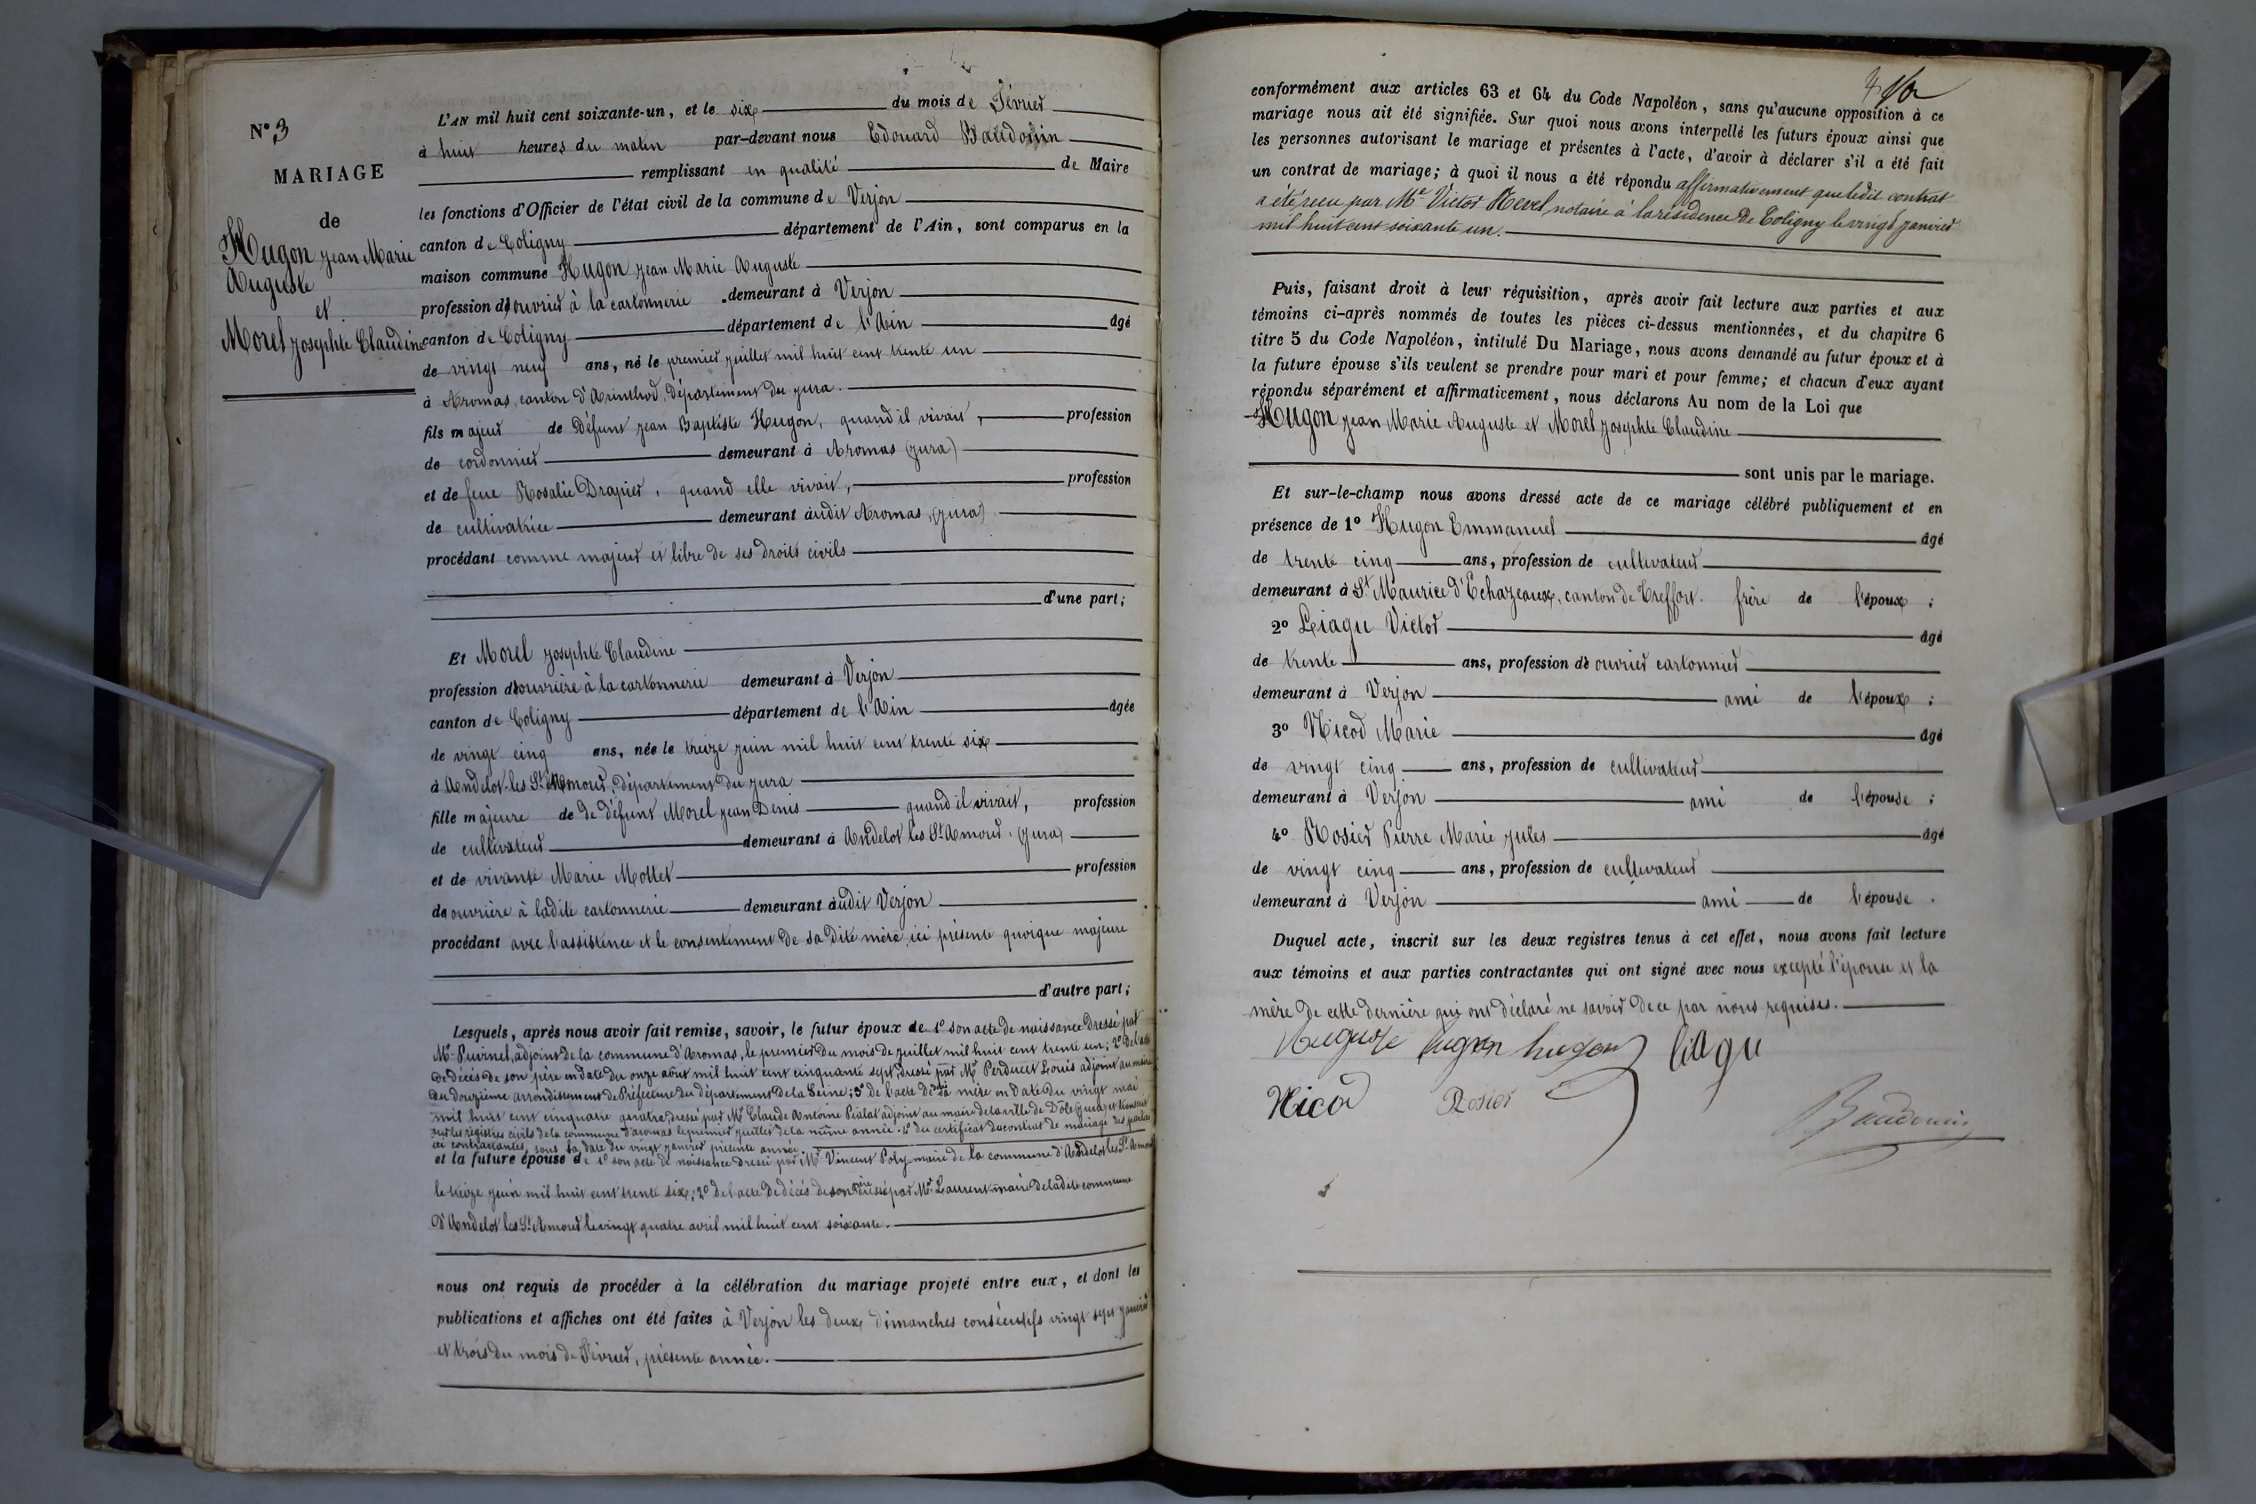 N° 3
MARIAGE
de
Hugon Jean Marie
Auguste
et
Morel Josephte Claudine
L'AN mil huit cent soixante-un, et le six du mois de Février
à huit heures du matin par-devant nous Edouard Baudouin
remplissant en qualité de Maire
les fonctions d'Officier de l'état civil de la commune de Verjon
canton de Coligny département de l'Ain, sont comparus en la
maison commune Hugon Jean Marie Auguste
profession d'ouvrier à la cartonnerie demeurant à Verjon
canton de Coligny département de l'Ain âgé
de vingt neuf ans, né le premier juillet mil huit cent trente un
à Aromas, canton d'Arinthod, département du jura.
fils majeur de défunt Jean Baptiste Hugon, quand il vivait, profession
de cordonnier demeurant à Aromas (jura)
et de feue Rosalie Drapier, quand elle vivait, profession
de cultivatrice demeurant audit Aromas, (jura)
procédant comme majeur et libre de ses droits civils
d'une part;
Et Morel Josephte Claudine
profession d'ouvrière à la cartonnerie demeurant à Verjon
canton de Coligny département de l'Ain âgée
de vingt cinq ans, née le treize juin mil huit cent trente six
à Andelot-les-St Amour, département du jura
fille majeure de de défunt Morel Jean Denis quand il vivait, profession
de cultivateur demeurant à Andelot les St Amour. (jura)
et de vivante Marie Mottet profession
de ouvrière à ladite cartonnerie demeurant audit Verjon
procédant avec l'assistence et le consentement de sa dite mère, ici présente quoique majeure
d'autre part;
Lesquels, après nous avoir fait remise, savoir, le futur époux de 1° son acte de naissance dressé par
Mr Puvinel, adjoint de la commune d'Aromas, le premier du mois de juillet mil huit cent trente un; 2° de l'acte
de décès de son père en date du onze août mil huit cent cinquante sept, dressé par Mr Perduct Louis adjoint au maire
du douzième arrondissement de Préfecture du département de la Seine; 3° de l'acte de sa mère en date du vingt mai
mil huit cent cinquante quatre, dressé par Mr Claude Antoine Pialat adjoint au maire de la ville de Dôle (jura) et transcrit
sur les registres civils de la commune d'aromas le premier juillet de la même année. 4° du certificat du contrat de mariage des parties
ici contractantes, sous la date du vingt janvier présente année.
et la future épouse de 1° son acte de naissance dressé par Mr Vincent Poly maire de la commune d'Andelot les St Amour
le treize juin mil huit cent trente six; 2° de l'acte de décès de son père par Mr Laurent maire de ladite commune
d'Andelot les St Amour le vingt quatre avril mil huit cent soixante.
nous ont requis de procéder à la célébration du mariage projeté entre eux, et dont les
publications et affiches ont été faites à Verjon les deux dimanches consécutifs vingt sept janvier
et trois du mois de Février, présente année.
conformément aux articles 63 et 64 du Code Napoléon, sans qu'aucune opposition à ce
mariage nous ait été signifiée. Sur quoi nous avons interpellé les futurs époux ainsi que
les personnes autorisant le mariage et présentes à l'acte, d'avoir à déclarer s'il a été fait
un contrat de mariage; à quoi il nous a été répondu affirmativement que ledit contrat
a été reçu par Me Victor Revel, notaire à la résidence de Coligny le vingt janvier
mil huit cent soixante un.
Puis, faisant droit à leur réquisition, après avoir fait lecture aux parties et aux
témoins ci-après nommés de toutes les pièces ci-dessus mentionnées, et du chapitre 6
titre 5 du Code Napoléon, intitulé Du Mariage, nous avons demandé au futur époux et à
la future épouse s'ils veulent se prendre pour mari et pour femme; et chacun d'eux ayant
répondu séparément et affirmativement, nous déclarons Au nom de la Loi que
Hugon Jean Marie Auguste et Morel Josephte Claudine
sont unis par le mariage.
Et sur-le-champ nous avons dressé acte de ce mariage célébré publiquement et en
présence de 1° Hugon Emmanuel âgé
de trente cinq ans, profession de cultivateur
demeurant à St Maurice d'Echazeaux, canton de Treffort. frère de l'époux ;
2° Liagu Victor âgé
de trente ans, profession de ouvrier cartonnier
demeurant à Verjon ami de l'époux ;
3° Nicod Marie âgé
de vingt cinq ans, profession de cultivateur
demeurant à Verjon ami de l'épouse ;
4° Rosier Pierre Marie Jules âgé
de vingt cinq ans, profession de cultivateur
demeurant à Verjon ami de l'épouse .
Duquel acte, inscrit sur les deux registres tenus à cet effet, nous avons fait lecture
aux témoins et aux parties contractantes qui ont signé avec nous excepté l'épouse et la
mère de cette dernière qui ont déclaré ne savoir de ce par nous requises.
Auguste hugon hugon liagu
Nicod Rosier
Baudouin